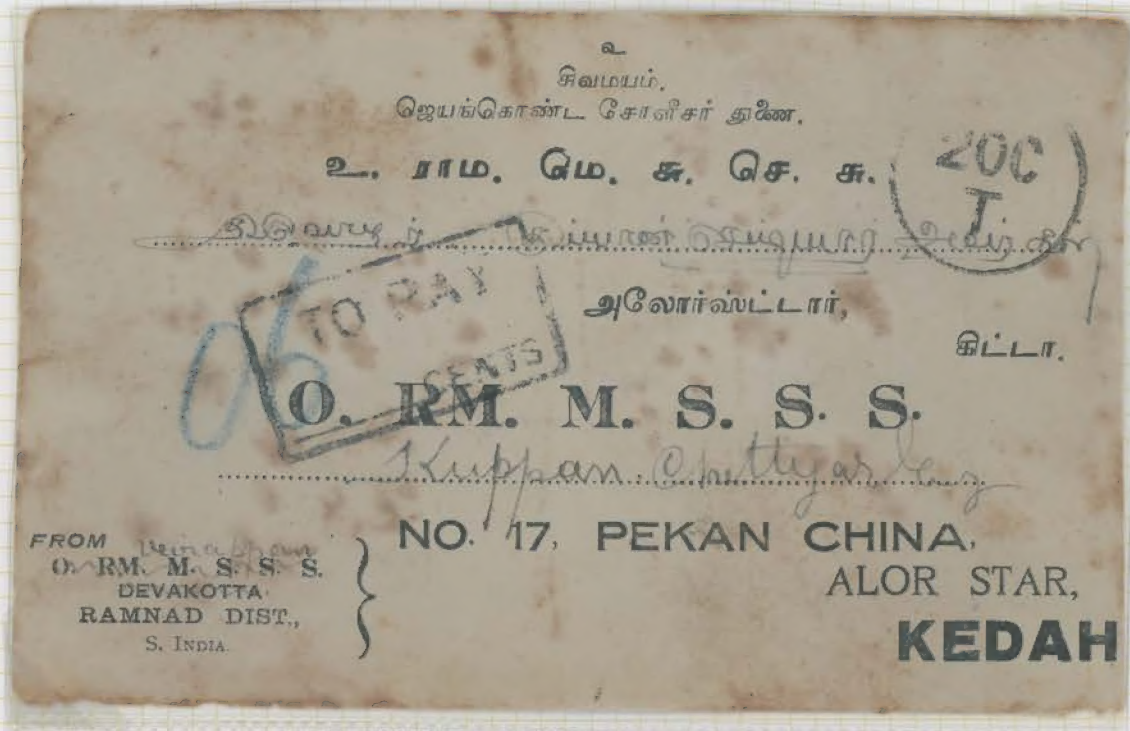 உ
சிவமயம்.
ஜெயங்கொண்ட சோளீசர் துணை.
உ. ராம. மெ. சு. செ. சு.
20C
T
TO PAY
CENTS
அலோர்ஸ்ட்டார்,
கிட்டா.
O. RM. M. S. S. S.
Kuppan Chettyar
NO. 17, PEKAN CHINA,
ALOR STAR,
KEDAH
FROM
O. RM. M. S. S. S.
DEVAKOTTA
RAMNAD DIST.,
S. INDIA.